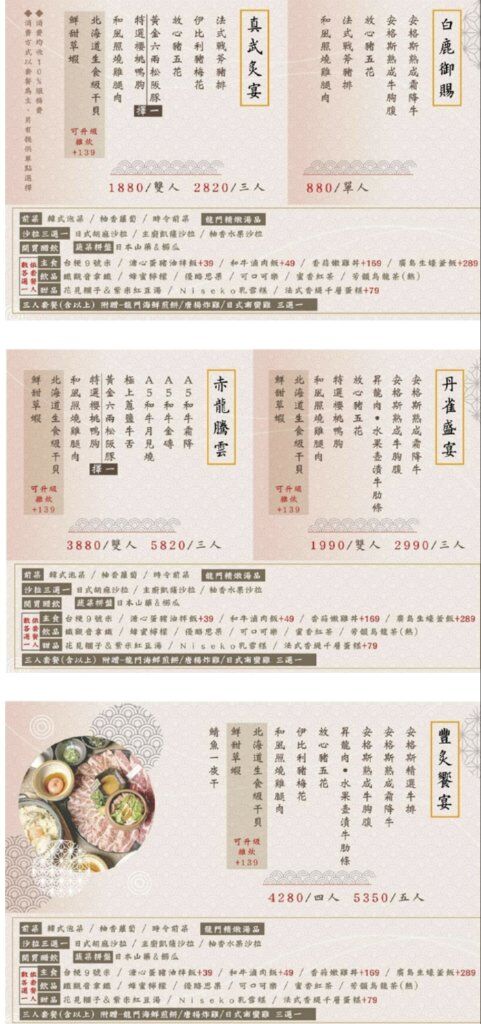 白鹿御賜
安格斯熟成霜降牛
安格斯熟成牛胸腹
放心豬五花
法式戰斧豬排
和風照燒雞腿肉
880/單人
真武炙宴
法式戰斧豬排
伊比利豬梅花
放心豬五花
黃金六兩松阪豚
特選櫻桃鴨胸
擇一
和風照燒雞腿肉
北海道生食級干貝
鮮甜草蝦
可升級
雜炊
+139
1880/雙人 2820/三人
◆消費均收10%服務費
◆消費方式以套餐為主，另有提供單點選擇
前菜 韓式泡菜 / 柚香蘿蔔 / 時令前菜 龍門精燉湯品
沙拉三選一 日式胡麻沙拉 / 主廚凱薩沙拉 / 柚香水果沙拉
開胃醋飲 蔬菜拼盤 日本山藥&櫛瓜
依套餐人數各選一
主食 台梗9號米 / 溏心蛋豬油拌飯+39 / 和牛滷肉飯+49 / 香蒜嫩雞丼+169 / 廣島生蠔釜飯+289
飲品 鐵觀音拿鐵 / 蜂蜜檸檬 / 優酪思果 / 可口可樂 / 蜜香紅茶 / 芳韻烏龍茶(熱)
甜品 花見糰子&紫米紅豆湯 / Niseko乳雪糕 / 法式香緹千層蛋糕+79
三人套餐(含以上) 附贈-龍門海鮮煎餅/唐揚炸雞/日式南蠻雞 三選一
丹雀盛宴
安格斯熟成霜降牛
安格斯熟成牛胸腹
昇龍肉•水果壺漬牛肋條
放心豬五花
特選櫻桃鴨胸
和風照燒雞腿肉
北海道生食級干貝
鮮甜草蝦
可升級
雜炊
+139
1990/雙人 2990/三人
赤龍騰雲
A5和牛霜降
A5和牛金磚
A5和牛月見燒
極上蔥鹽牛舌
黃金六兩松阪豚
特選櫻桃鴨胸
擇一
和風照燒雞腿肉
北海道生食級干貝
鮮甜草蝦
可升級
雜炊
+139
3880/雙人 5820/三人
前菜 韓式泡菜 / 柚香蘿蔔 / 時令前菜 龍門精燉湯品
沙拉三選一 日式胡麻沙拉 / 主廚凱薩沙拉 / 柚香水果沙拉
開胃醋飲 蔬菜拼盤 日本山藥&櫛瓜
依套餐人數各選一
主食 台梗9號米 / 溏心蛋豬油拌飯+39 / 和牛滷肉飯+49 / 香蒜嫩雞丼+169 / 廣島生蠔釜飯+289
飲品 鐵觀音拿鐵 / 蜂蜜檸檬 / 優酪思果 / 可口可樂 / 蜜香紅茶 / 芳韻烏龍茶(熱)
甜品 花見糰子&紫米紅豆湯 / Niseko乳雪糕 / 法式香緹千層蛋糕+79
三人套餐(含以上) 附贈-龍門海鮮煎餅/唐揚炸雞/日式南蠻雞 三選一
豐炙饗宴
安格斯精選牛排
安格斯熟成霜降牛
安格斯熟成牛胸腹
昇龍肉•水果壺漬牛肋條
放心豬五花
伊比利豬梅花
和風照燒雞腿肉
北海道生食級干貝
鮮甜草蝦
可升級
雜炊
+139
鯖魚一夜干
4280/四人 5350/五人
前菜 韓式泡菜 / 柚香蘿蔔 / 時令前菜 龍門精燉湯品
沙拉三選一 日式胡麻沙拉 / 主廚凱薩沙拉 / 柚香水果沙拉
開胃醋飲 蔬菜拼盤 日本山藥&櫛瓜
依套餐人數各選一
主食 台梗9號米 / 溏心蛋豬油拌飯+39 / 和牛滷肉飯+49 / 香蒜嫩雞丼+169 / 廣島生蠔釜飯+289
飲品 鐵觀音拿鐵 / 蜂蜜檸檬 / 優酪思果 / 可口可樂 / 蜜香紅茶 / 芳韻烏龍茶(熱)
甜品 花見糰子&紫米紅豆湯 / Niseko乳雪糕 / 法式香緹千層蛋糕+79
三人套餐(含以上) 附贈-龍門海鮮煎餅/唐揚炸雞/日式南蠻雞 三選一